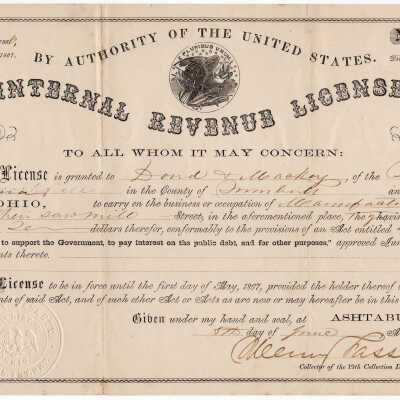 1867.
BY AUTHORITY OF THE UNITED STATES.
E PLURIBUS UNUM
INTERNAL REVENUE LICENSE
TO ALL WHOM IT MAY CONCERN:
License is granted to Bond & Mackey, of the
in the County of Trumbull and
OHIO, to carry on the business or occupation of
saw mill Street, in the aforementioned place,
Ten dollars therefor, conformably to the provisions of an Act entitled
to support the Government, to pay interest on the public debt, and for other purposes," approved
nts thereto.
License to be in force until the first day of May, 1867, provided the holder thereof
nts of said Act, and of such other Act or Acts as are now or may hereafter be in this
Given under my hand and seal, at ASHTABU
5th day of June
Henry Fass
Collector of the 19th Collection D